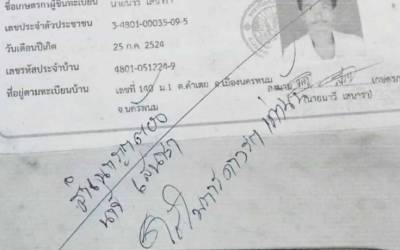 ชื่อเกษตรกรผู้ขึ้นทะเบียน นายนาวี เสนารา
เลขประจำตัวประชาชน 3-4801-00035-09-5
วันเดือนปีเกิด 25 ก.ค. 2524
เลขรหัสประจำบ้าน 4801-051224-9
ที่อยู่ตามทะเบียนบ้าน เลขที่ 140 ม.1 ต.คำเตย อ.เมืองนครพนม
จ.นครพนม
ลงนาม
(นายนาวี เสนารา)
สำเนาถูกต้อง
นาวี เสนารา